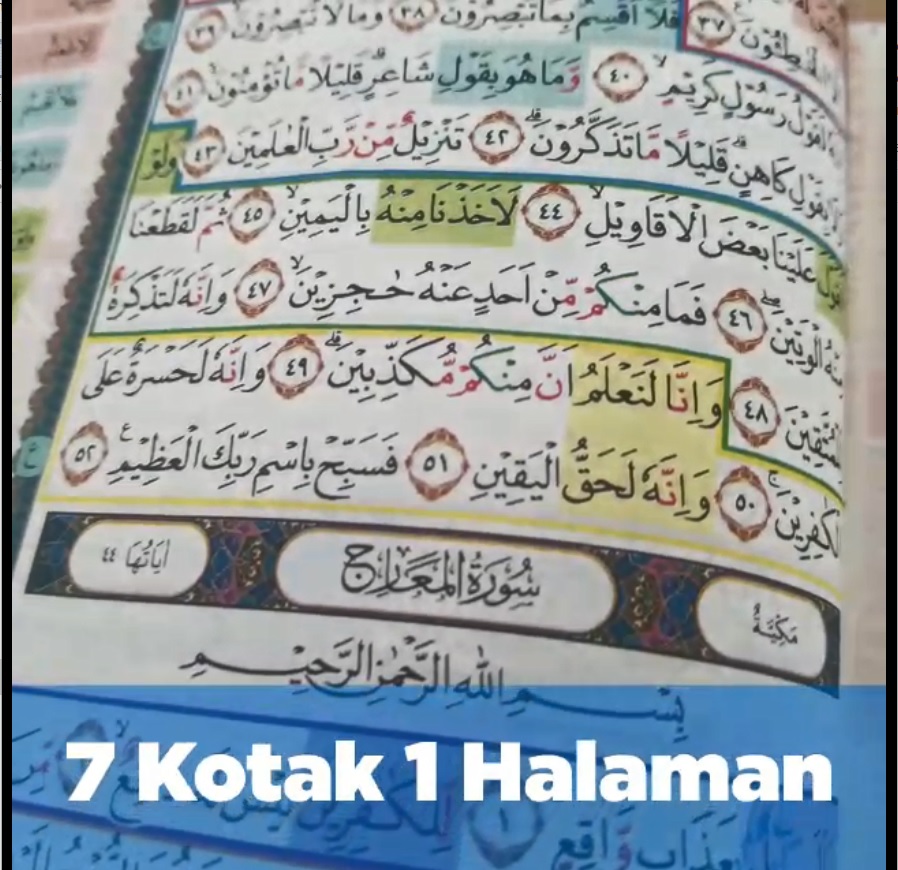 الْخَاطِـُٔوْنَ ٣٧ فَلَآ اُقْسِمُ بِمَا تُبْصِرُوْنَ ٣٨ وَمَا لَا تُبْصِرُوْنَ ٣٩
لَقَوْلُ رَسُوْلٍ كَرِيْمٍ ٤٠ وَّمَا هُوَ بِقَوْلِ شَاعِرٍ قَلِيْلًا مَّا تُؤْمِنُوْنَ ٤١
بِقَوْلِ كَاهِنٍ قَلِيْلًا مَّا تَذَكَّرُوْنَ ٤٢ تَنْزِيْلٌ مِّنْ رَّبِّ الْعٰلَمِيْنَ ٤٣ وَلَوْ
تَقَوَّلَ عَلَيْنَا بَعْضَ الْاَقَاوِيْلِ ٤٤ لَاَخَذْنَا مِنْهُ بِالْيَمِيْنِ ٤٥ ثُمَّ لَقَطَعْنَا
مِنْهُ الْوَتِيْنَ ٤٦ فَمَا مِنْكُمْ مِّنْ اَحَدٍ عَنْهُ حٰجِزِيْنَ ٤٧ وَاِنَّهٗ لَتَذْكِرَةٌ
لِّلْمُتَّقِيْنَ ٤٨ وَاِنَّا لَنَعْلَمُ اَنَّ مِنْكُمْ مُّكَذِّبِيْنَ ٤٩ وَاِنَّهٗ لَحَسْرَةٌ عَلَى
الْكٰفِرِيْنَ ٥٠ وَاِنَّهٗ لَحَقُّ الْيَقِيْنِ ٥١ فَسَبِّحْ بِاسْمِ رَبِّكَ الْعَظِيْمِ ٥٢
مَكِّيَّةٌ سُوْرَةُ الْمَعَارِجِ اٰيَاتُهَا ٤٤
بِسْمِ اللّٰهِ الرَّحْمٰنِ الرَّحِيْمِ
7 Kotak 1 Halaman
بِعَذَابٍ وَّاقِعٍ ١ لِّلْكٰفِرِيْنَ لَيْسَ